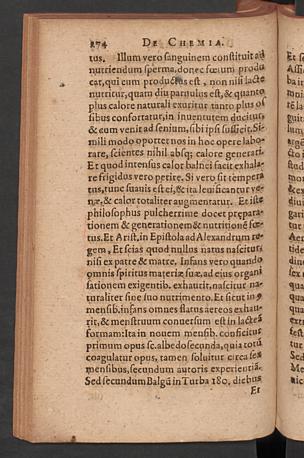 274 DE CHEMIA.
tus. Illum vero sanguinem constituit ad
nutriendum sperma, donec fœtum produ
cat, qui cum productus est, non nisi lacte
nutritur, quam diu parvulus est, & quanto
plus calore naturali exuritur tanto plus os
sibus confortatur, in inventutem ducitur,
& cum venit ad senium, sibi ipsi sufficit. Si-
mili modo oportet nos in hoc opere labo-
rare, scientes nihil absq; calore generari.
Et quod intensus calor balnei facit exhala-
re frigidus vero perire. Si vero sit tempera
tus, tunc suavis est ei, & ita levificantur ve-
næ, & calor totaliter augmentatur. Et iste
philosophus pulcherrime docet præpara-
tionem & generationem & nutritionē fœ-
tus. Et Arist. in Epistola ad Alexandrum re-
gem, Et scias quod nullus natus nascitur,
nisi ex patre & matre. Infans vero quando
omnis spiritus materiæ suæ, ad eius organi
sationem exigentib. exhaurit, nascitur na-
turaliter sine suo nutrimento. Et sicut in 9
mensib. infans omnes flatus aereos exhau-
rit, & menstruum conversum est in lacteā
formam: Ita in nouem mensib. conficitur
primum opus sc. albedo secunda, quia totū
coagulatur opus, tamen soluitur circa sex
mensibus, secundum autoris experientiā.
Sed secundum Balgū in Turba 180. diebus
Et